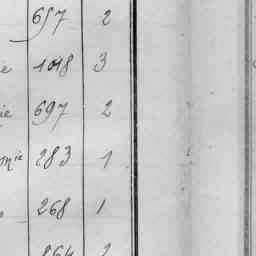 657 2
e 1018 3
ie 697 2
mie 283 1
268 1
264 2